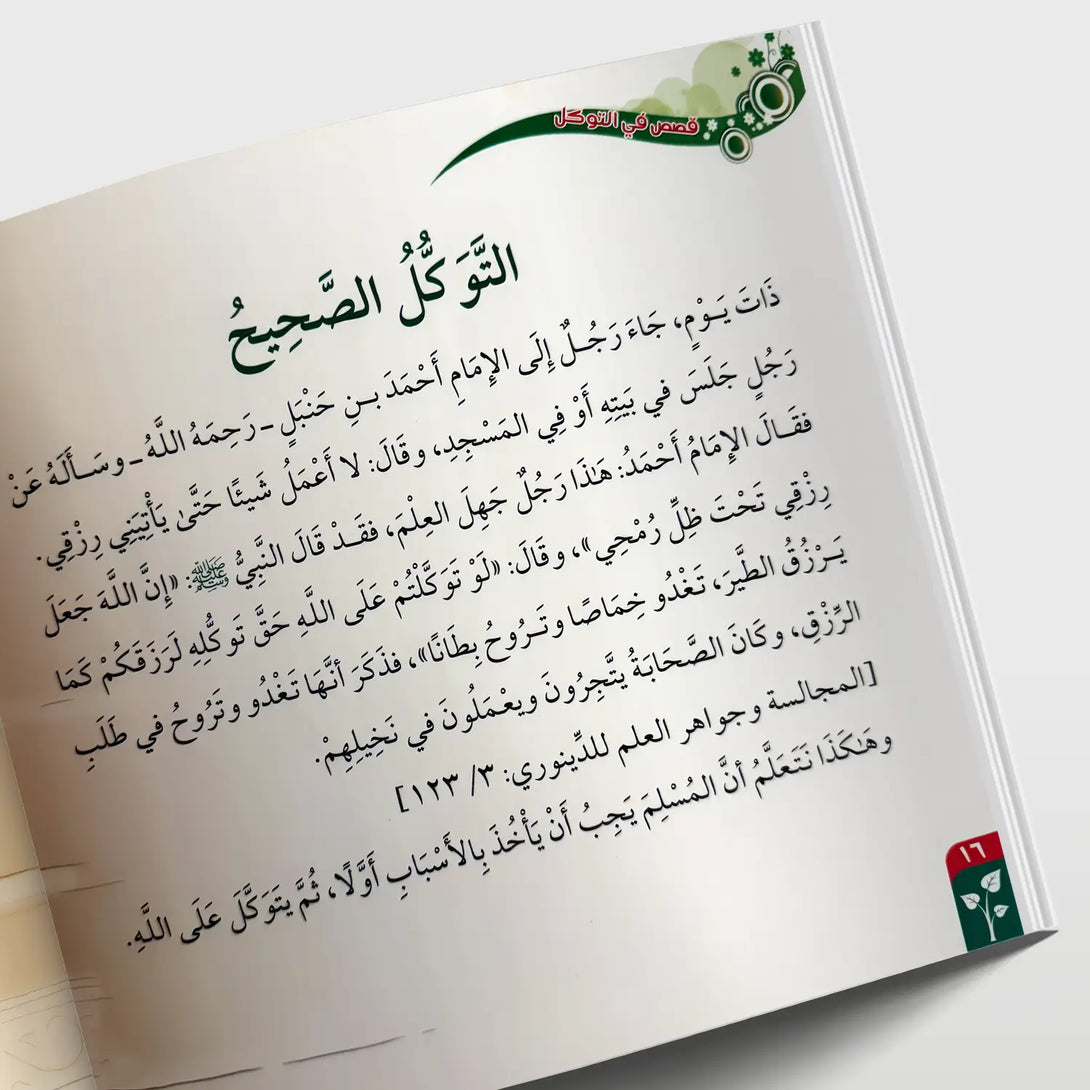 قصص في التوكل
التَّوَكُّلُ الصَّحِيحُ
ذَاتَ يَـوْمٍ، جَاءَ رَجُـلٌ إِلَى الإِمَامِ أَحْمَدَ بـنِ حَنْبَلٍ ـ رَحِمَهُ اللَّهُ ـ وسَـأَلَهُ عَنْ
رَجُلٍ جَلَسَ في بَيتِهِ أَوْ فِي المَسْجِدِ، وقَالَ: لا أَعْمَلُ شَيئًا حَتَّىٰ يَأْتِيَنِي رِزْقِي.
فقَـالَ الإِمَامُ أَحْمَدُ: هَـٰذَا رَجُلٌ جَهِلَ العِلْمَ، فقَـدْ قَالَ النَّبِيُّ ﷺ: «إِنَّ اللَّهَ جَعَلَ
رِزْقِي تَحْتَ ظِلِّ رُمْحِي»، وقَالَ: «لَوْ تَوَكَّلْتُمْ عَلَى اللَّهِ حَقَّ تَوكُّلِهِ لَرَزَقَكُمْ كَمَا
يَـرْزُقُ الطَّيرَ، تَغْدُو خِمَاصًا وتَـرُوحُ بِطَانًا»، فذَكَرَ أنَّهَا تَغْدُو وتَرُوحُ في طَلَبِ
الرِّزْقِ، وكَانَ الصَّحَابَةُ يتَّجِرُونَ ويعْمَلُونَ في نَخِيلِهِمْ.
[المجالسة وجواهر العلم للدِّينوري: ٣/ ١٢٣]
وهَـٰكَذَا نَتَعَلَّمُ أنَّ المُسْلِمَ يَجِبُ أَنْ يَأْخُذَ بِالأَسْبَابِ أَوَّلًا، ثُمَّ يتَوَكَّلَ عَلَى اللَّهِ.
١٦